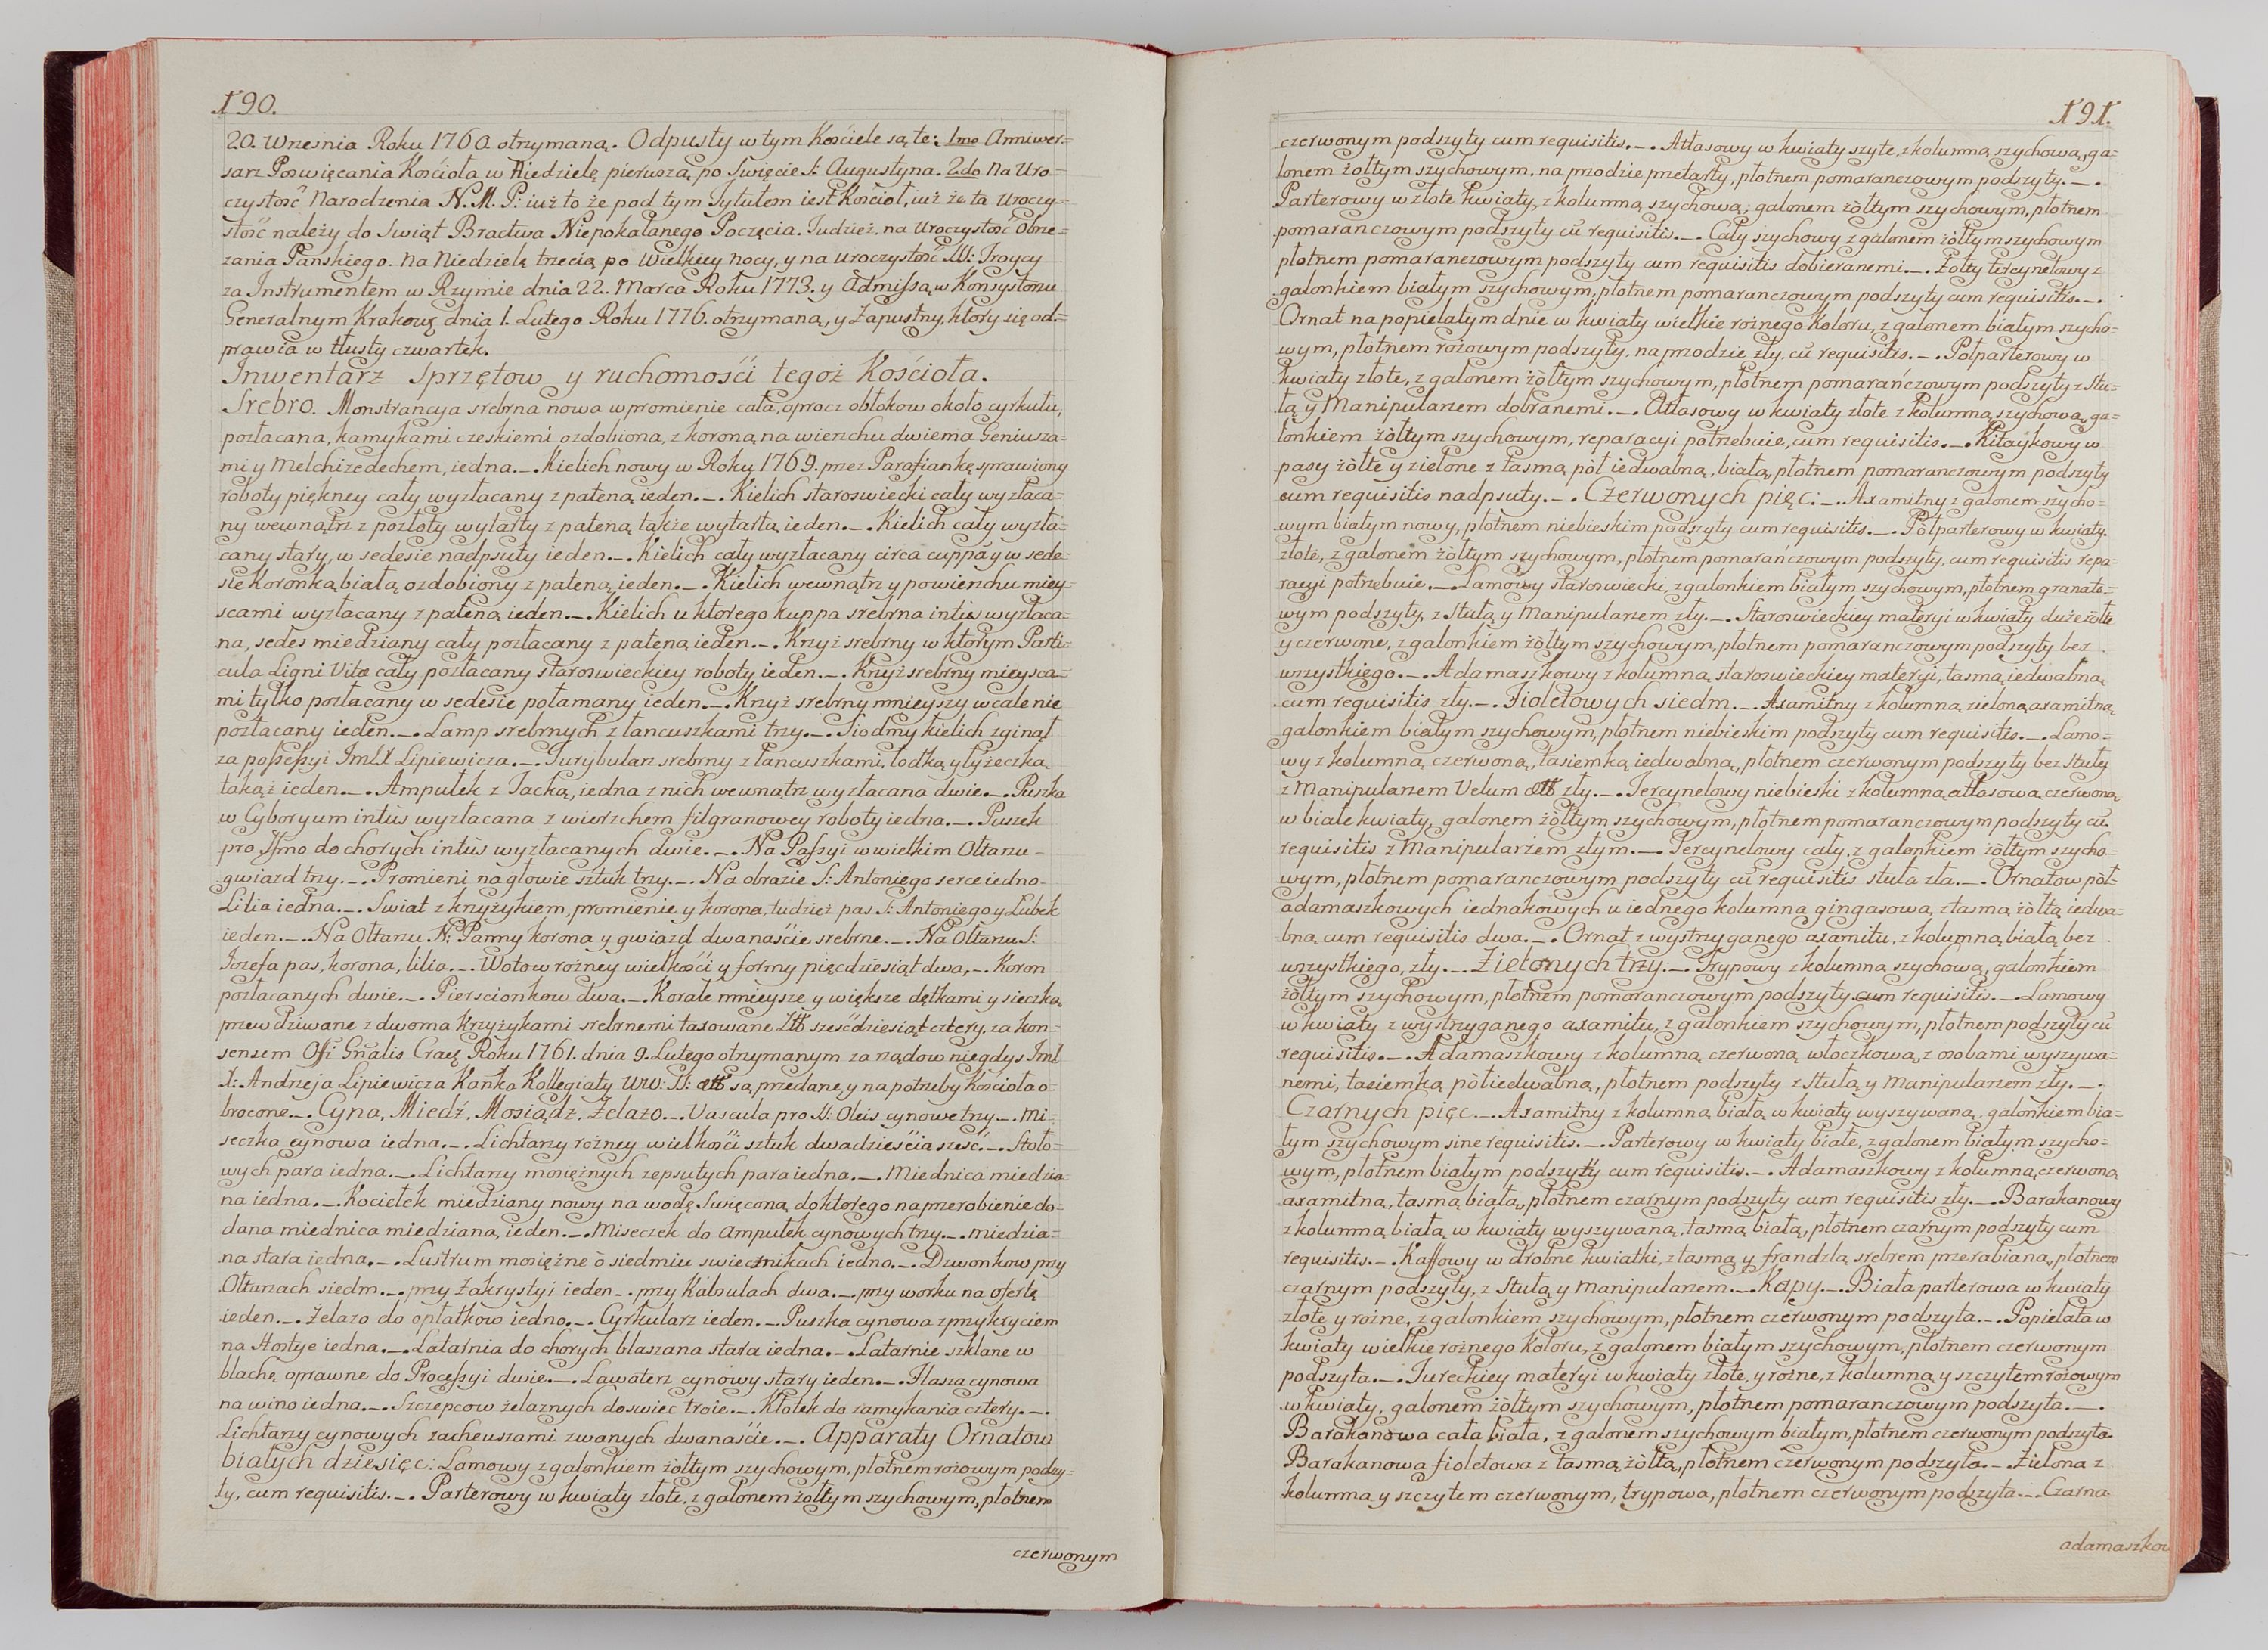 190.
20. Wrzesnia Roku 1760. otrzymaną. Odpusty w tym Kościele są te: 1mo Anniwer=
sarz Poswięcania Kościoła w Niedzielę pierwszą, po Swięcie S: Augustyna. 2do Na Uro=
czystość Narodzenia N. M. P: iuż to że pod tym Tytułem iest Kościoł, iuż że ta Uroczy=
stość należy do Swiąt Bractwa Niepokalanego Poczęcia. Tudzież na Uroczystość Obrze=
zania Pańskiego. Na Niedzielę trzecią po Wielkiey nocy, y na Uroczystość SS: Troycy
za Instrumentem w Rzymie dnia 22. Marca Roku 1773. y Admissą w Konsystorzu
Generalnym Krakow: dnia 1. Lutego Roku 1776. otrzymaną, y Zapustny, ktory się od=
prawia w tłusty czwartek.
Inwentarz Sprzętow y ruchomości tegoż Kościoła.
Srebro. Monstrancya srebrna nowa w promienie cała, oprocz obłokow około cyrkułu,
pozłacana, kamykami czeskiemi ozdobiona, z koroną na wierzchu dwiema Geniusza=
mi y Melchizedechem, iedna._. Kielich nowy w Roku 1769. przez Parafiankę sprawiony
roboty piękney cały wyzłacany z pateną ieden._. Kielich staroswiecki cały wyzłaca=
ny wewnątrz z pozłoty wytarty z pateną także wytartą ieden._. Kielich cały wyzła=
cany stary, w sedesie nadpsuty ieden._. Kielich cały wyzłacany circa cuppą y w sede=
sie koronką białą ozdobiony z pateną ieden._. Kielich wewnątrz y powierzchu miey=
scami wyzłacany z pateną ieden._. Kielich u ktorego kuppa srebrna intus wyzłaca=
na, sedes miedziany cały pozłacany z pateną ieden._. Krzyż srebrny w ktorym Parti=
cula Ligni Vitæ cały pozłacany staroswieckiey roboty ieden._. Krzyż srebrny mieysca=
mi tylko pozłacany w sedesie połamany ieden._. Krzyż srebrny mnieyszy wcale nie
pozłacany ieden._. Lamp srebrnych z łancuszkami trzy._. Siodmy kielich zginął
za possessyi ImX Lipiewicza._. Turybularz srebrny z łancuszkami, łodką y łyżeczką
takąż ieden._. Ampułek z Tacką, iedna z nich wewnątrz wyzłacana dwie._. Puszka
w Cyboryum intùs wyzłacana z wierzchem filgranowey roboty iedna._. Puszek
pro Ssmo do chorych intùs wyzłacanych dwie._. Na Passyi w wielkim Ołtarzu
gwiazd trzy._. Promieni na głowie sztuk trzy._. Na obrazie S: Antoniego serce iedno
Lilia iedna._. Swiat z krzyżykiem, promienie y korona, tudzież pas S: Antoniego y Lubek
ieden._. Na Ołtarzu N: Panny korona y gwiazd dwanaście srebrne._. Na Ołtarzu S:
Jozefa pas, korona, lilia._. Wotow rożney wielkości y formy pięcdziesiąt dwa,_. Koron
pozłacanych dwie._. Pierscionkow dwa._. Korale mnieysze y większe dętkami y sieczką
przewdziwane z dwoma krzyżykami srebrnemi taxowane Złł szesćdziesiąt cztery. za kon=
sensem Offi Gñalis Crac: Roku 1761. dnia 9. Lutego otrzymanym za rządow niegdys Iml
X: Andrzeja Lipiewicza Kańka Kollegiaty WW: SS: są przedane, y na potrzeby Kościoła o=
brocone._. Cyna, Miedź, Mosiądz, Żelazo._. Vascula pro SS: Oleis cynowe trzy._. Mi=
seczka cynowa iedna._. Lichtarzy rożney wielkości sztuk dwadzieścia szesć._. Stoło=
wych para iedna._. Lichtarzy mosiężnych zepsutych para iedna._. Miednica miedzia=
na iedna._. Kociełek miedziany nowy na wodę Swięconą do ktorego na przerobienie do=
dana miednica miedziana, ieden._. Miseczek do Ampułek cynowych trzy._. miedzia=
na stara iedna._. Lustrum mosiężne o siedmiu swiecznikach iedno._. Dzwonkow przy
Ołtarzach siedm._. przy Zakrystyi ieden_. przy Kabzulach dwa._. przy worku na ofertę
ieden._. Żelazo do opłatkow iedno._. Cyrkularz ieden._. Puszka cynowa z przykryciem
na Hostye iedna._. Latarnia do chorych blaszana stara iedna._. Latarnie szklane w
blachę oprawne do Processyi dwie._. Lawaterz cynowy stary ieden._. Flasza cynowa
na wino iedna._. Szczepcow żelaznych do swiec troie._. Kłotek do zamykania cztery._.
Lichtarzy cynowych zacheuszami zwanych dwanaście._. Apparaty Ornatow
białych dziesięc: Lamowy z galonkiem żołtym szychowym, płotnem rożowym podszy=
ty, cum requisitis._. Parterowy w kwiaty złote, z galonem żołtym szychowym, płotnem
czerwonym
191.
czerwonym podszyty cum requisitis._. Atłasowy w kwiaty szyte, z kolumną szychową, ga=
lonem żołtym szychowym. na przodzie przetarty, płotnem pomaranczowym podszyty._.
Parterowy w złote kwiaty, z kolumną szychową; galonem żòłtym szychowym, płotnem
pomaranczowym podszyty cũ requisitis._. Cały szychowy z galonem żòłtym szychowym
płotnem pomaranczowym podszyty cum requisitis dobieranemi._. Żołty tercynelowy z
galonkiem białym szychowym, płotnem pomaranczowym podszyty cum requisitis._.
Ornat na popielatym dnie w kwiaty wielkie rożnego koloru, z galonem białym szycho=
wym, płotnem rożowym podszyty, na przodzie zły, cũ requisitis._. Połparterowy w
kwiaty złote, z galonem żòłtym szychowym, płotnem pomarańczowym podszyty z stu=
łą y Manipularzem dobranemi._. Atłasowy w kwiaty złote z kolumną szychową, ga=
lonkiem żòłtym szychowym, reparacyi potrzebuie, cum requisitis._. Kitaykowy w
pasy żòłte y zielone z tasmą pòł iedwabną, białą, płotnem pomaranczowym podszyty
cum requisitis nadpsuty._. Czerwonych pięc:_. Axamitny z galonem szycho=
wym białym nowy, płotnem niebieskim podszyty cum requisitis._. Pòłparterowy w kwiaty
złote, z galonem żòłtym szychowym, płotnem pomarańczowym podszyty, cum requisitis repa=
racyi potrzebuie._. Lamowy staroswiecki, z galonkiem białym szychowym, płotnem granato=
wym podszyty, z Stułą y Manipularzem zły._. Staroswieckiey materyi w kwiaty duże żòłte
y czerwone, z galonkiem żòłtym szychowym, płotnem pomaranczowym podszyty bez
wszystkiego._. Adamaszkowy z kolumną staroswieckiey materyi, tasmą iedwabną,
cum requisitis zły._. Fioletowych siedm._. Axamitny z kolumną zieloną axamitną
galonkiem białym szychowym, płotnem niebieskim podszyty cum requisitis._. Lamo=
wy z kolumną czerwoną, tasiemką iedwabną, płotnem czerwonym podszyty bez Stuły
z Manipularzem Velum zły._. Tercynelowy niebieski z kolumną atłasową czerwoną
w białe kwiaty, galonem żòłtym szychowym, płotnem pomaranczowym podszyty cũ
requisitis z Manipularzem złym._. Tercynelowy cały, z galonkiem żòłtym szycho=
wym, płotnem pomaranczowym podszyty cũ requisitis stuła zła._. Ornatow pòł=
adamaszkowych iednakowych u iednego kolumna gingasowa z tasmą żòłtą iedwa=
bną cum requisitis dwa._. Ornat z wystrzyganego axamitu, z kolumną białą bez
wszystkiego, zły._. Zielonych trzy._. Trypowy z kolumną szychową, galonkiem
żòłtym szychowym, płotnem pomaranczowym podszyty cum requisitis._. Lamowy
w kwiaty z wystrzyganego axamitu, z galonkiem szychowym, płotnem podszyty cũ
requisitis._. Adamaszkowy z kolumną czerwoną włoczkową, z osobami wyszywa=
nemi, tasiemką pòłiedwabną, płotnem podszyty z Stułą y Manipularzem zły._.
Czarnych pięc._. Axamitny z kolumną białą w kwiaty wyszywaną, galonkiem bia=
łym szychowym sine requisitis._. Parterowy w kwiaty białe, z galonem białym szycho=
wym, płotnem białym podszyty cum requisitis._. Adamaszkowy z kolumną czerwoną
axamitną, tasmą białą, płotnem czarnym podszyty cum requisitis zły._. Barakanowy
z kolumną białą w kwiaty wyszywaną, tasmą białą, płotnem czarnym podszyty cum
requisitis._. Kaffowy w drobne kwiatki, z tasmą y frandzlą srebrem przerabianą, płotnem
czarnym podszyty, z Stułą y Manipularzem._. Kapy._. Biała parterowa w kwiaty
złote y rożne, z galonkiem szychowym, płotnem czerwonym podszyta._. Popielata w
kwiaty wielkie rożnego koloru, z galonem białym szychowym, płotnem czerwonym
podszyta._. Tureckiey materyi w kwiaty złote, y rożne, z kolumną y szczytem rożowym
w kwiaty, galonem żòłtym szychowym, płotnem pomaranczowym podszyta._.
Barakanowa cała biała, z galonem szychowym białym, płotnem czerwonym podszyta
Barakanowa fioletowa z tasmą żòłtą, płotnem czerwonym podszyta._. Zielona z
kolumną y szczytem czerwonym, trypowa, płotnem czerwonym podszyta._. Czarna
adamaszkow